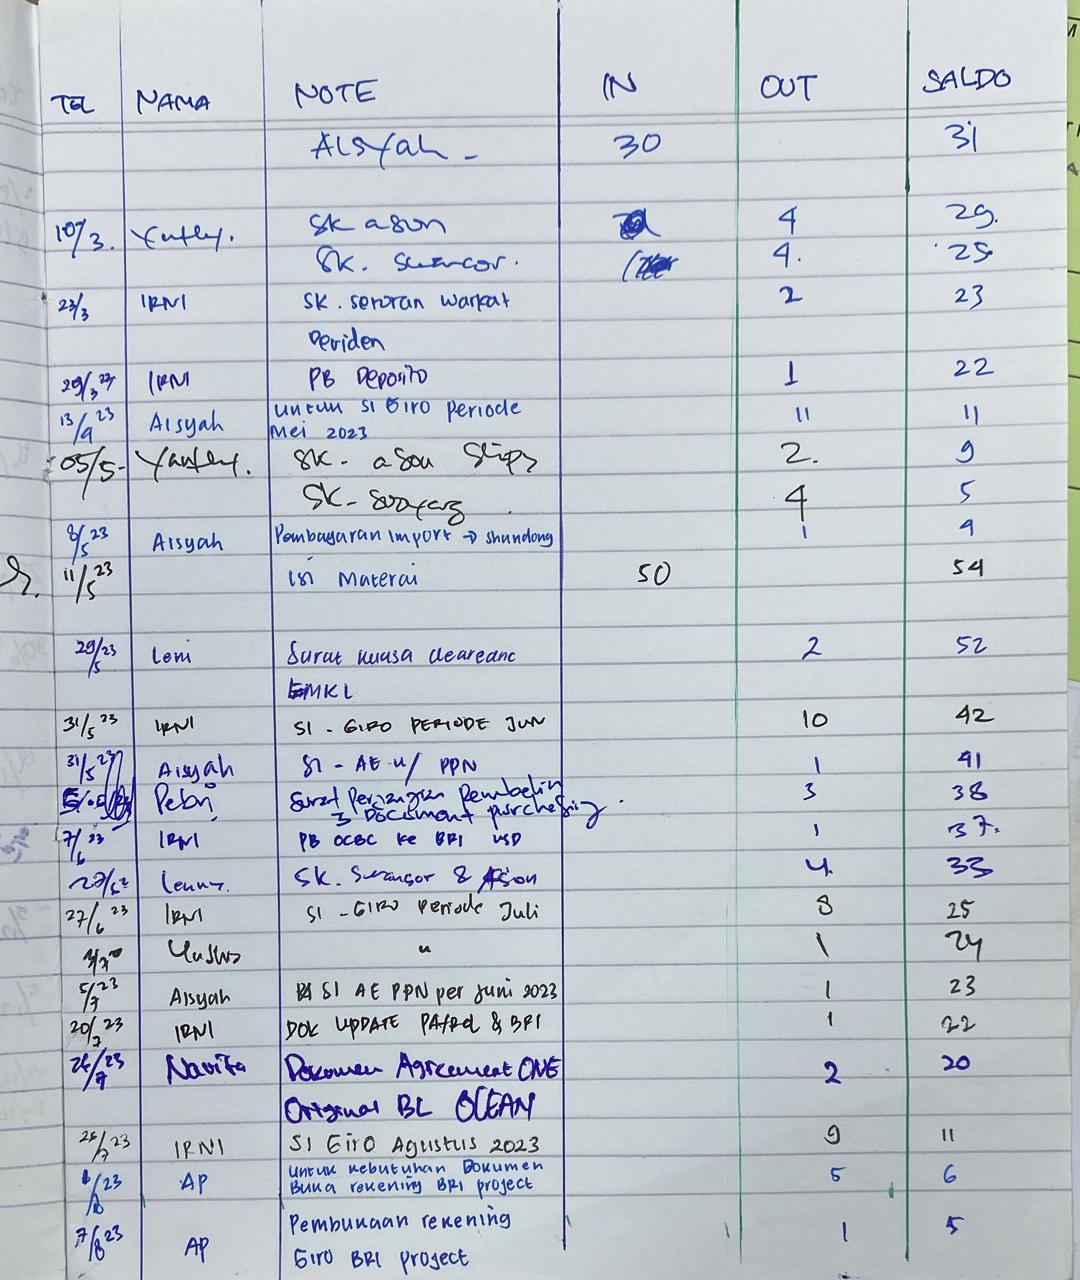 TGL NAMA NOTE IN OUT SALDO
AISyah - 30 31
10/3. Yantey. SK ason 4 29.
SK. 4. 25
23/3 IRNI SK. setoran warkat 2 23
Deviden
29/3 23 IRNI PB Deposito 1 22
13/4 23 Aisyah untuk SI Giro Periode 11 11
Mei 2023
05/5- SK- 2. 9
SK- 4 5
8/5 23 Aisyah Pembayaran Import → shandong 1 4
11/5 23 isi Materai 50 54
29/5 23 Leni Surat kuasa clearanc 2 52
EMKL
31/5 23 IRNI SI - GIRO PERIODE JUN 10 42
31/5 23 Aisyah SI - AE u/ PPN 1 41
Pebri Surat Perjanjian Pembelin 3 38
3 Document purchesing.
7/6 23 IRNI PB OCBC ke BRI USD 1 37.
Lenny. SK. & Ason 4 33
27/6 23 IRNI SI - GIRO Periode Juli 8 25
" 1 24
5/7 23 Aisyah SI AE PPN per Juni 2023 1 23
20/7 23 IRNI DOK UPDATE & BRI 1 22
26/7 23 Navita Dokumen Agreement ONE 2 20
Original BL OCEAN
26/7 23 IRNI SI Giro Agustus 2023 9 11
8/23 AP untuk kebutuhan Dokumen 5 6
Buka rekening BRI project
7/8 23 AP Pembukaan rekening 1 5
Giro BRI project